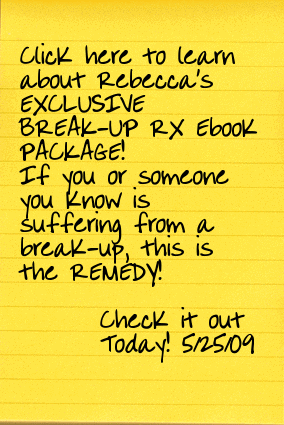 Click here to learn
about Rebecca's
EXCLUSIVE
BREAK-UP RX Ebook
PACKAGE!
If you or someone
you know is
suffering from a
break-up, this is
the REMEDY!
Check it out
Today! 5/25/09